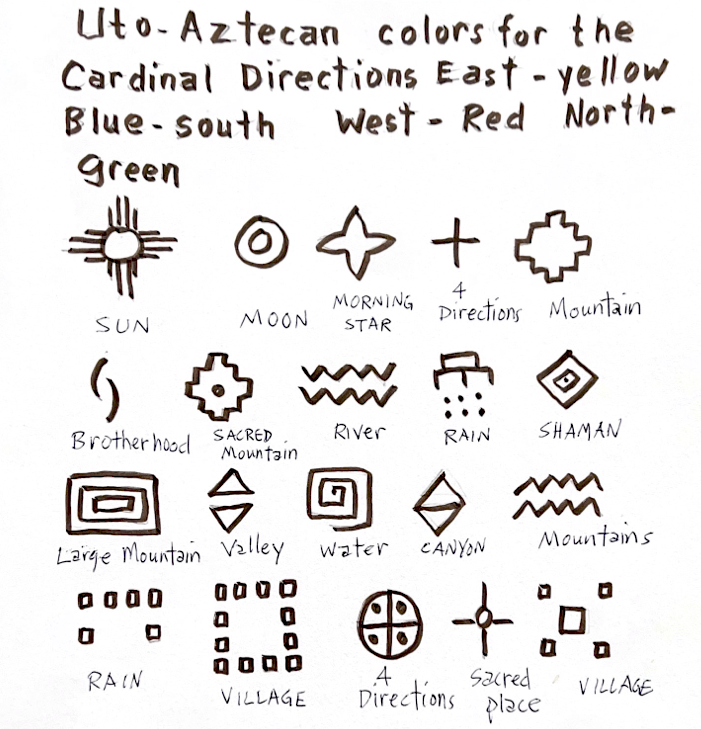 Uto-Aztecan colors for the
Cardinal Directions East-yellow
Blue-south West-Red North-
green
SUN
MOON
MORNING
STAR
4
Directions
Mountain
Brotherhood
SACRED
Mountain
River
RAIN
SHAMAN
Large Mountain
Valley
Water
CANYON
Mountains
RAIN
VILLAGE
4
Directions
Sacred
place
VILLAGE